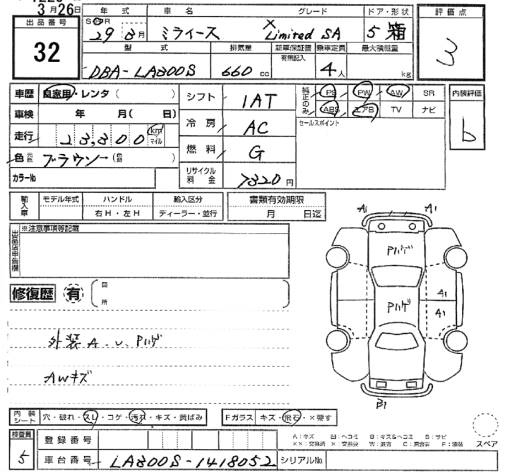 3月26日
出品番号
32
年式 車名 グレード ドア・形状
S H R 29年8月 ミライース X Limited SA 5 箱
型式 排気量 新車保証書 乗車定員 最大積載量
有無記入
DBA-LA300S 660cc 4人 kg
評価点
3
車歴 自家用・レンタ( )
車検 年 月(日)
走行 23,300 km マイル
色 ブラウン
カラーNo
シフト 1AT
冷房 AC
燃料 G
リサイクル料金 7320円
純正のみ PS PW AW SR
ABS エアB TV ナビ
セールスポイント
内装評価
b
輸入車 モデル年式 ハンドル 輸入区分
右H・左H ディーラー・並行
書類有効期限
月 日迄
※注意事項等記載
修復歴 有 箇所
外装 A.U.Pハゲ
AWキズ
A1 A1
Pハゲ
A1
Pハゲ A1
B1
内装シート 穴・破れ・スレ・コゲ・汚れ・キズ・黄ばみ
Fガラス キズ・飛石・×要す
A:キズ U:ヘコミ B:キズ&ヘコミ S:サビ
スペア
検査員 5
登録番号
車台番号 LA300S-1418052 シリアルNo